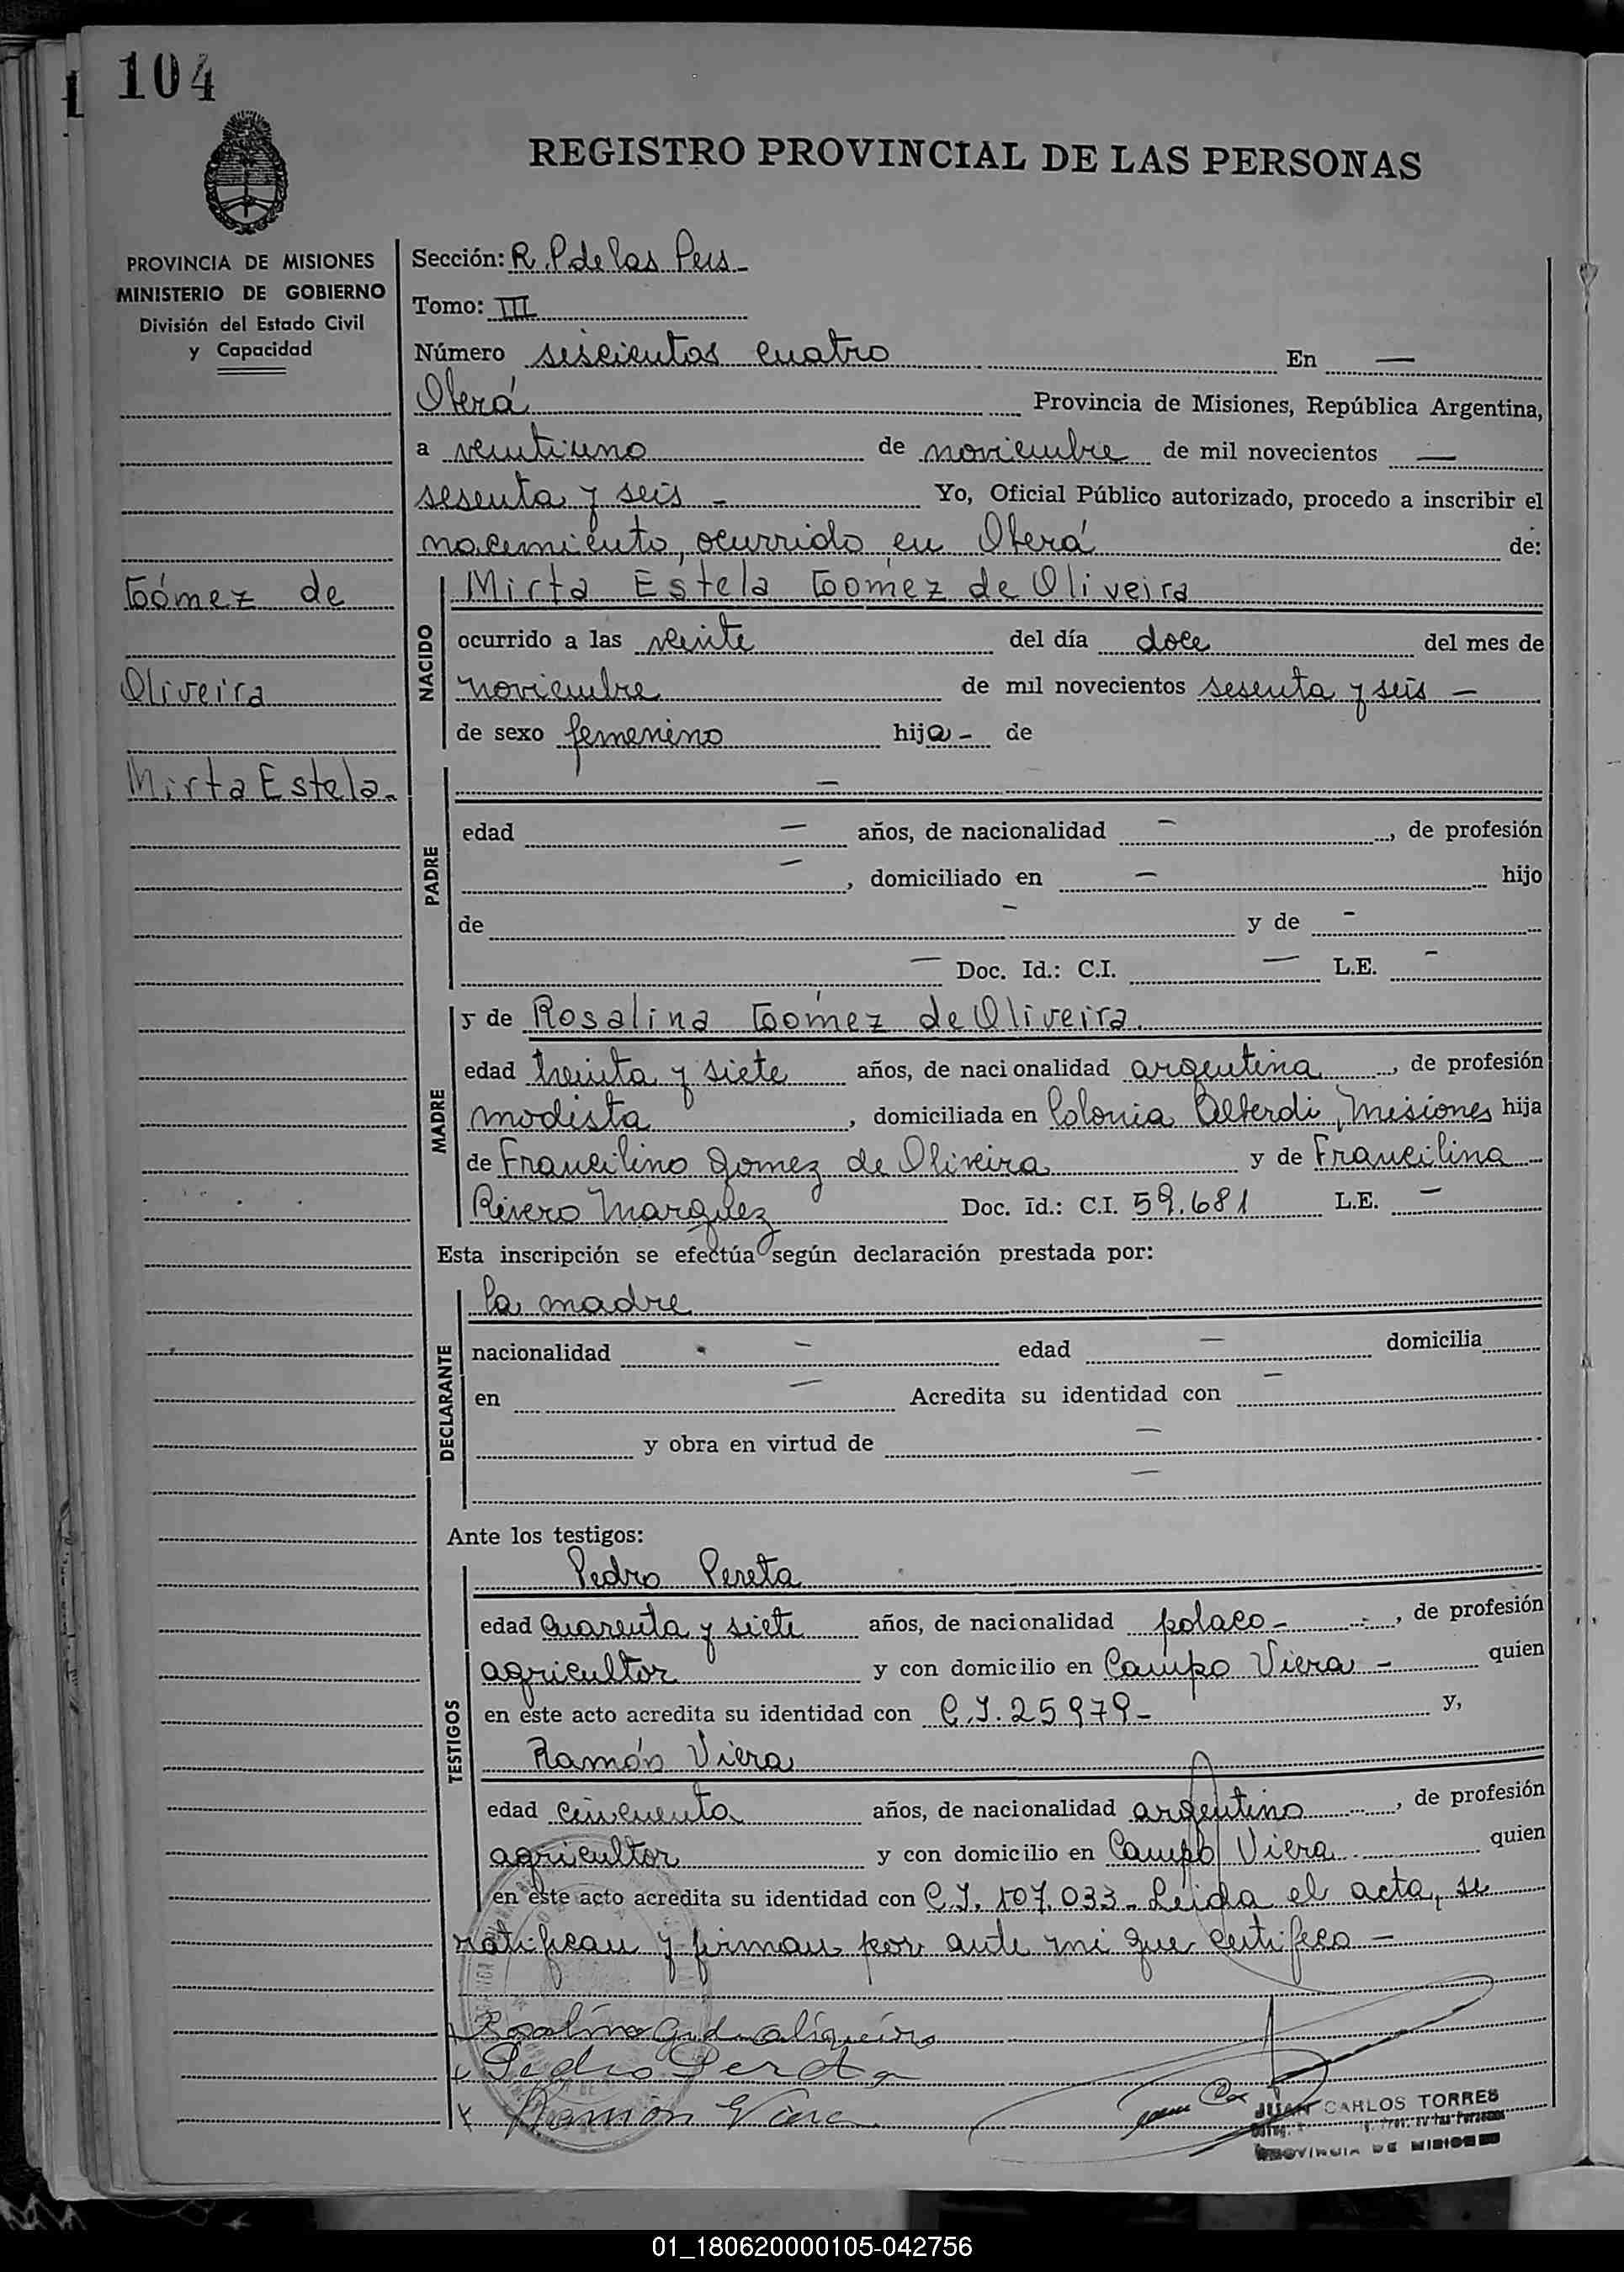 104
REGISTRO PROVINCIAL DE LAS PERSONAS
PROVINCIA DE MISIONES
MINISTERIO DE GOBIERNO
División del Estado Civil
y Capacidad
Gómez de
Oliveira
Mirta Estela.
Sección: R. P. de las Pers -
Tomo: III
Número seiscientos cuatro En —
Oberá Provincia de Misiones, República Argentina,
a veintiuno de noviembre de mil novecientos —
sesenta y seis - Yo, Oficial Público autorizado, procedo a inscribir el
nacimiento, ocurrido en Oberá de:
NACIDO
Mirta Estela Gómez de Oliveira
ocurrido a las veinte del día doce del mes de
noviembre de mil novecientos sesenta y seis —
de sexo femenino hija - de
PADRE
—
edad — años, de nacionalidad — , de profesión
— , domiciliado en — hijo
de — y de -
— Doc. Id.: C.I. — L.E. -
MADRE
y de Rosalina Gómez de Oliveira.
edad treinta y siete años, de nacionalidad argentina , de profesión
modista , domiciliada en Colonia Alberdi, Misiones hija
de Francilino Gomez de Oliveira y de Francilina
Rivero Marquez Doc. Id.: C.I. 59.681 L.E. —
Esta inscripción se efectúa según declaración prestada por:
DECLARANTE
la madre
nacionalidad — edad — domicilia
en — Acredita su identidad con —
y obra en virtud de —
—
Ante los testigos:
TESTIGOS
Pedro Pereta
edad cuarenta y siete años, de nacionalidad polaco - , de profesión
agricultor y con domicilio en Campo Viera - quien
en este acto acredita su identidad con C.I. 25979 - y,
Ramón Viera
edad cincuenta años, de nacionalidad argentino , de profesión
agricultor y con domicilio en Campo Viera quien
en este acto acredita su identidad con C.I. 107.033 - Leida el acta, se
ratifican y firman por ante mi que certifico -
Rosalina G. d
Pedro
Ramón Viera
JUAN CARLOS TORRES
PROVINCIA DE MISIONES
01_180620000105-042756